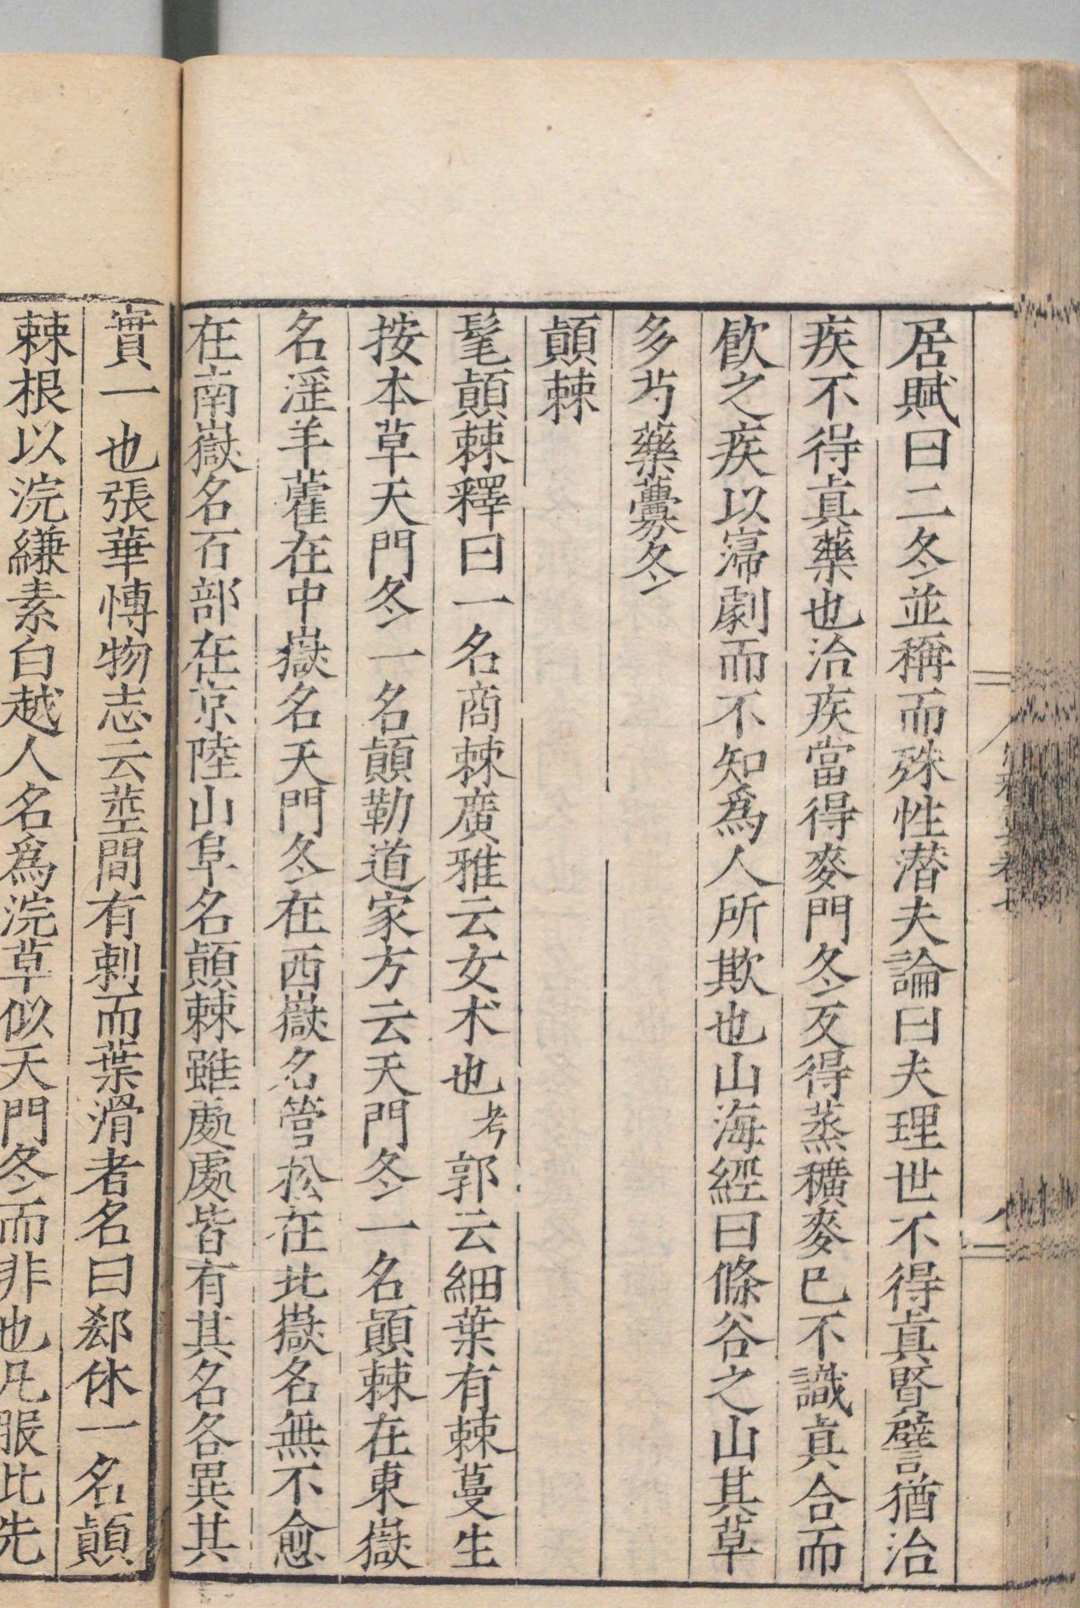 居賦曰二冬並稱而殊性潛夫論曰夫理世不得真賢譬猶治
疾不得真藥也治疾當得麥門冬反得蒸穬麥已不識真合而
飲之疾以𡪢劇而不知為人所欺也山海經曰條谷之山其草
多芍藥虋冬
顛棘
髦顛棘釋曰一名商棘廣雅云女木也考郭云細葉有棘蔓生
按本草天門冬一名顛勒道家方云天門冬一名顛棘在東嶽
名淫羊藿在中嶽名天門冬在西嶽名管松在北嶽名無不愈
在南嶽名百部在京陸山阜名顛棘雖處處皆有其名各異其
實一也張華博物志云莖間有刺而葉滑者名曰郄休一名顛
棘根以浣縑素白越人名為浣草似天門冬而非也凡服此先